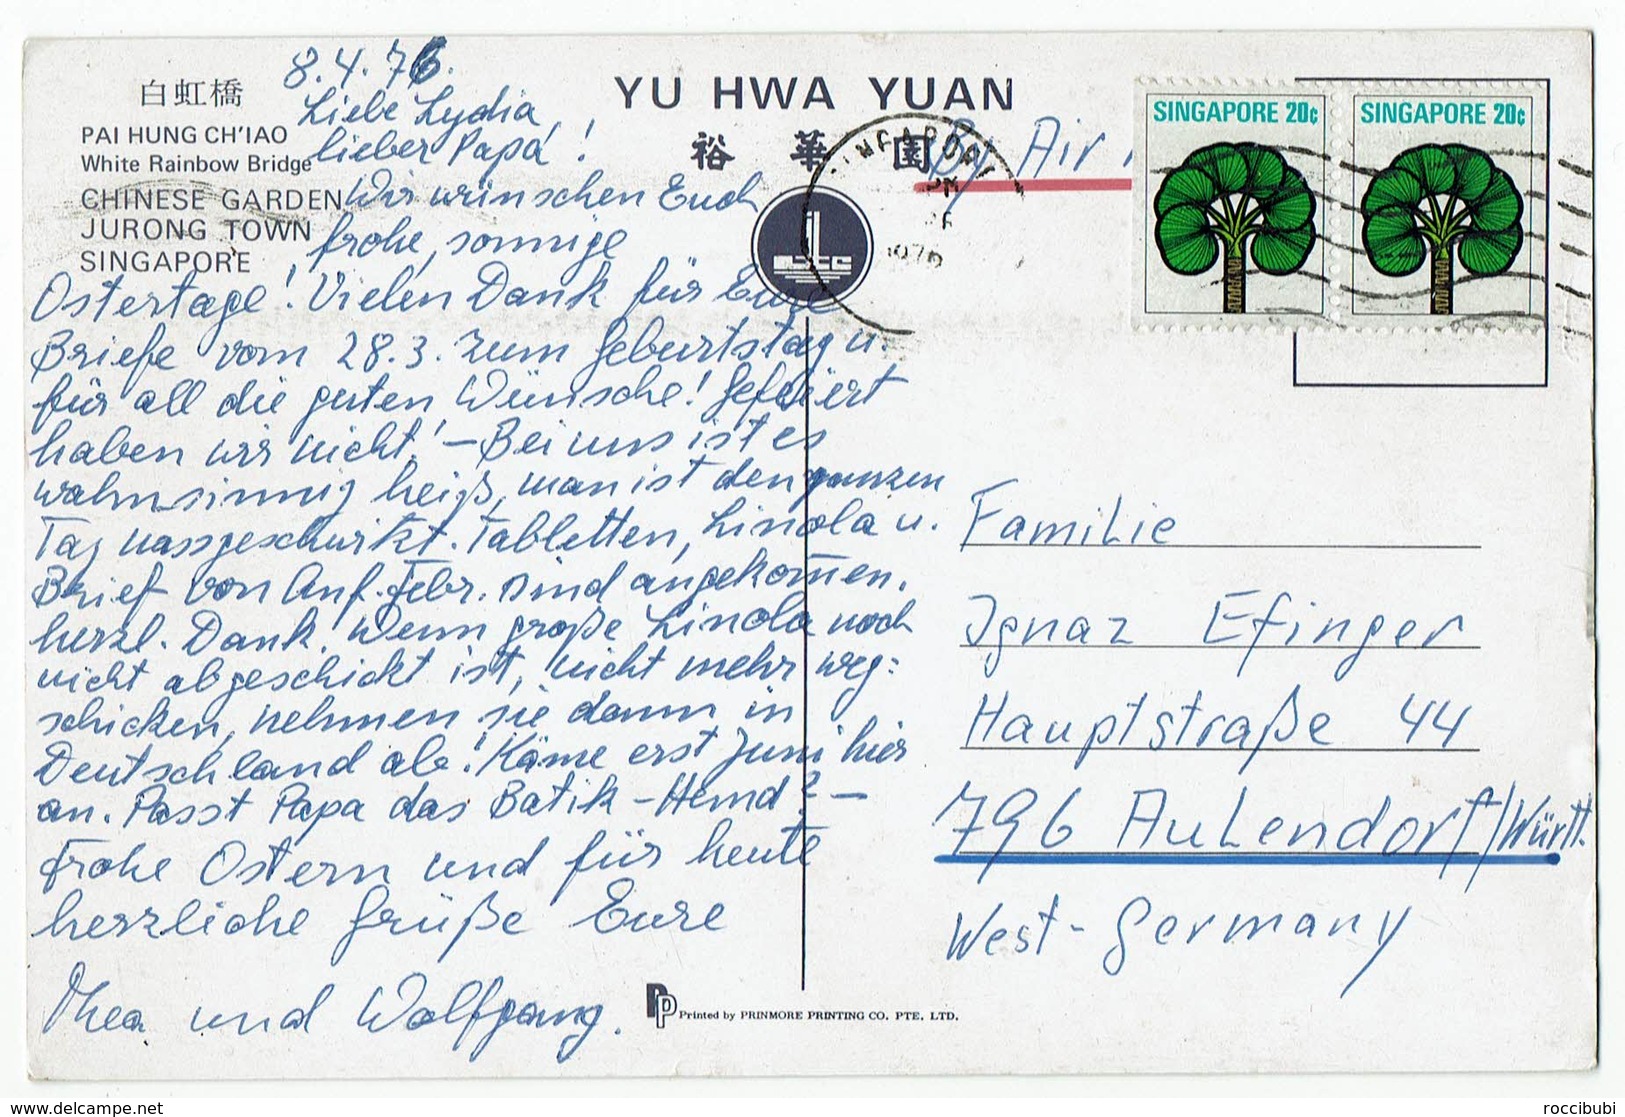 白虹橋
PAI HUNG CH'IAO
White Rainbow Bridge
CHINESE GARDEN
JURONG TOWN
SINGAPORE
YU HWA YUAN
裕華園
By Air
SINGAPORE 20¢
SINGAPORE 20¢
8.4.76.
Liebe Lydia,
lieber Papa!
Wir wünschen Euch
frohe, sonnige
Ostertage! Vielen Dank für Eure
Briefe vom 28.3. zum Geburtstag u.
für all die guten Wünsche! Gefeiert
haben wir nicht! – Bei uns ist es
wahnsinnig heiß, man ist den ganzen
Tag nassgeschwitzt. Tabletten, Linola u.
Brief von Anf. Febr. sind angekommen.
herzl. Dank. Wenn große Linola noch
nicht abgeschickt ist, nicht mehr weg=
schicken, nehmen sie dann in
Deutschland ab! Käme erst Juni hier
an. Passt Papa das Batik-Hemd? –
Frohe Ostern und für heute
herzliche Grüße Eure
Thea und Wolfgang.
Familie
Ignaz Efinger
Hauptstraße 44
796 Aulendorf/Württ.
West-Germany
PP Printed by PRINMORE PRINTING CO. PTE. LTD.
www.delcampe.net
roccibubi